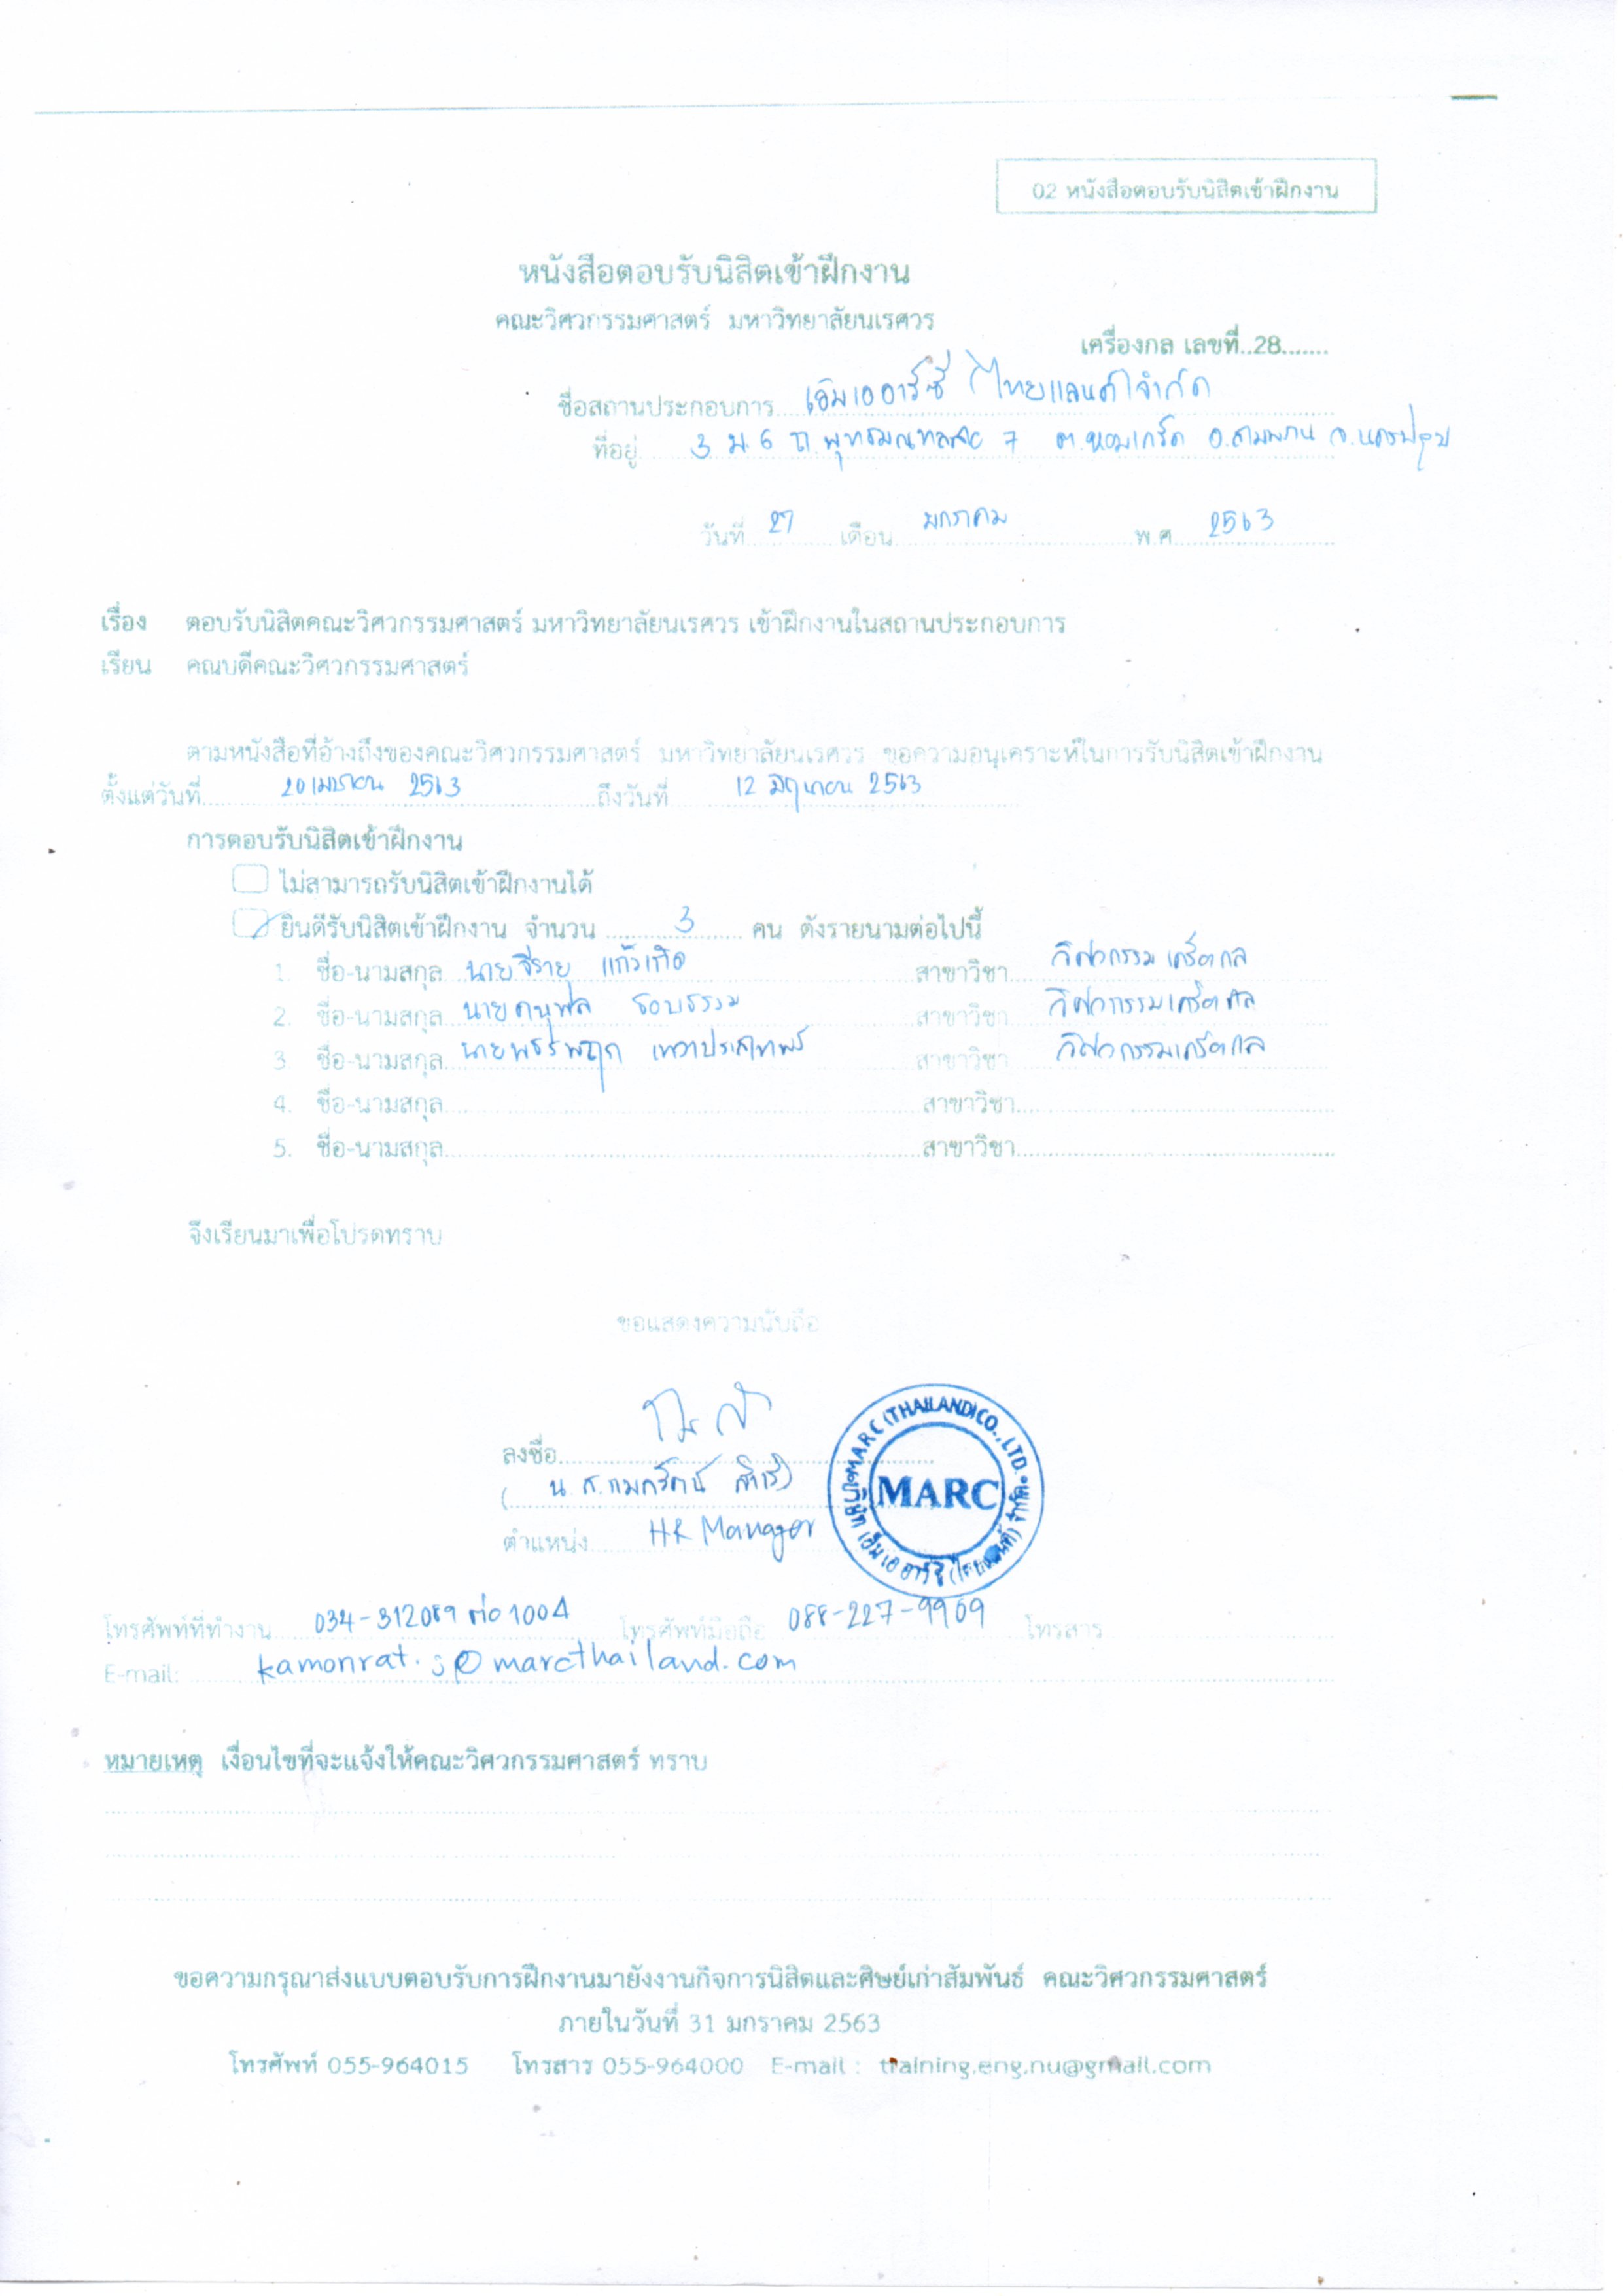 02 หนังสือตอบรับนิสิตเข้าฝึกงาน
หนังสือตอบรับนิสิตเข้าฝึกงาน
คณะวิศวกรรมศาสตร์ มหาวิทยาลัยนเรศวร
เครื่องกล เลขที่..28.......
ชื่อสถานประกอบการ เอ็มเออาร์ซี (ไทยแลนด์) จำกัด
ที่อยู่ 3 ม.6 ถ.พุทธมณฑลสาย 7 ต.หอมเกร็ด อ.สามพราน จ.นครปฐม
วันที่ 27 เดือน มกราคม พ.ศ. 2563
เรื่อง ตอบรับนิสิตคณะวิศวกรรมศาสตร์ มหาวิทยาลัยนเรศวร เข้าฝึกงานในสถานประกอบการ
เรียน คณบดีคณะวิศวกรรมศาสตร์
ตามหนังสือที่อ้างถึงของคณะวิศวกรรมศาสตร์ มหาวิทยาลัยนเรศวร ขอความอนุเคราะห์ในการรับนิสิตเข้าฝึกงาน
ตั้งแต่วันที่ 20 เมษายน 2563 ถึงวันที่ 12 มิถุนายน 2563
การตอบรับนิสิตเข้าฝึกงาน
ไม่สามารถรับนิสิตเข้าฝึกงานได้
ยินดีรับนิสิตเข้าฝึกงาน จำนวน 3 คน ดังรายนามต่อไปนี้
1. ชื่อ-นามสกุล นายจิรายุ แก้วเกิด สาขาวิชา วิศวกรรมเครื่องกล
2. ชื่อ-นามสกุล นายดนุพล ชอบธรรม สาขาวิชา วิศวกรรมเครื่องกล
3. ชื่อ-นามสกุล นาย สาขาวิชา วิศวกรรมเครื่องกล
4. ชื่อ-นามสกุล สาขาวิชา
5. ชื่อ-นามสกุล สาขาวิชา
จึงเรียนมาเพื่อโปรดทราบ
ขอแสดงความนับถือ
ลงชื่อ
( น.ส.กมลรัตน์ )
ตำแหน่ง HR Manager
MARC (THAILAND) CO., LTD.
MARC
บริษัท เอ็มเออาร์ซี (ไทยแลนด์) จำกัด
โทรศัพท์ที่ทำงาน 034-312089 ต่อ 1004 โทรศัพท์มือถือ 088-227-9969 โทรสาร
E-mail: kamonrat.s@marcthailand.com
หมายเหตุ เงื่อนไขที่จะแจ้งให้คณะวิศวกรรมศาสตร์ ทราบ
ขอความกรุณาส่งแบบตอบรับการฝึกงานมายังงานกิจการนิสิตและศิษย์เก่าสัมพันธ์ คณะวิศวกรรมศาสตร์
ภายในวันที่ 31 มกราคม 2563
โทรศัพท์ 055-964015 โทรสาร 055-964000 E-mail : training.eng.nu@gmail.com